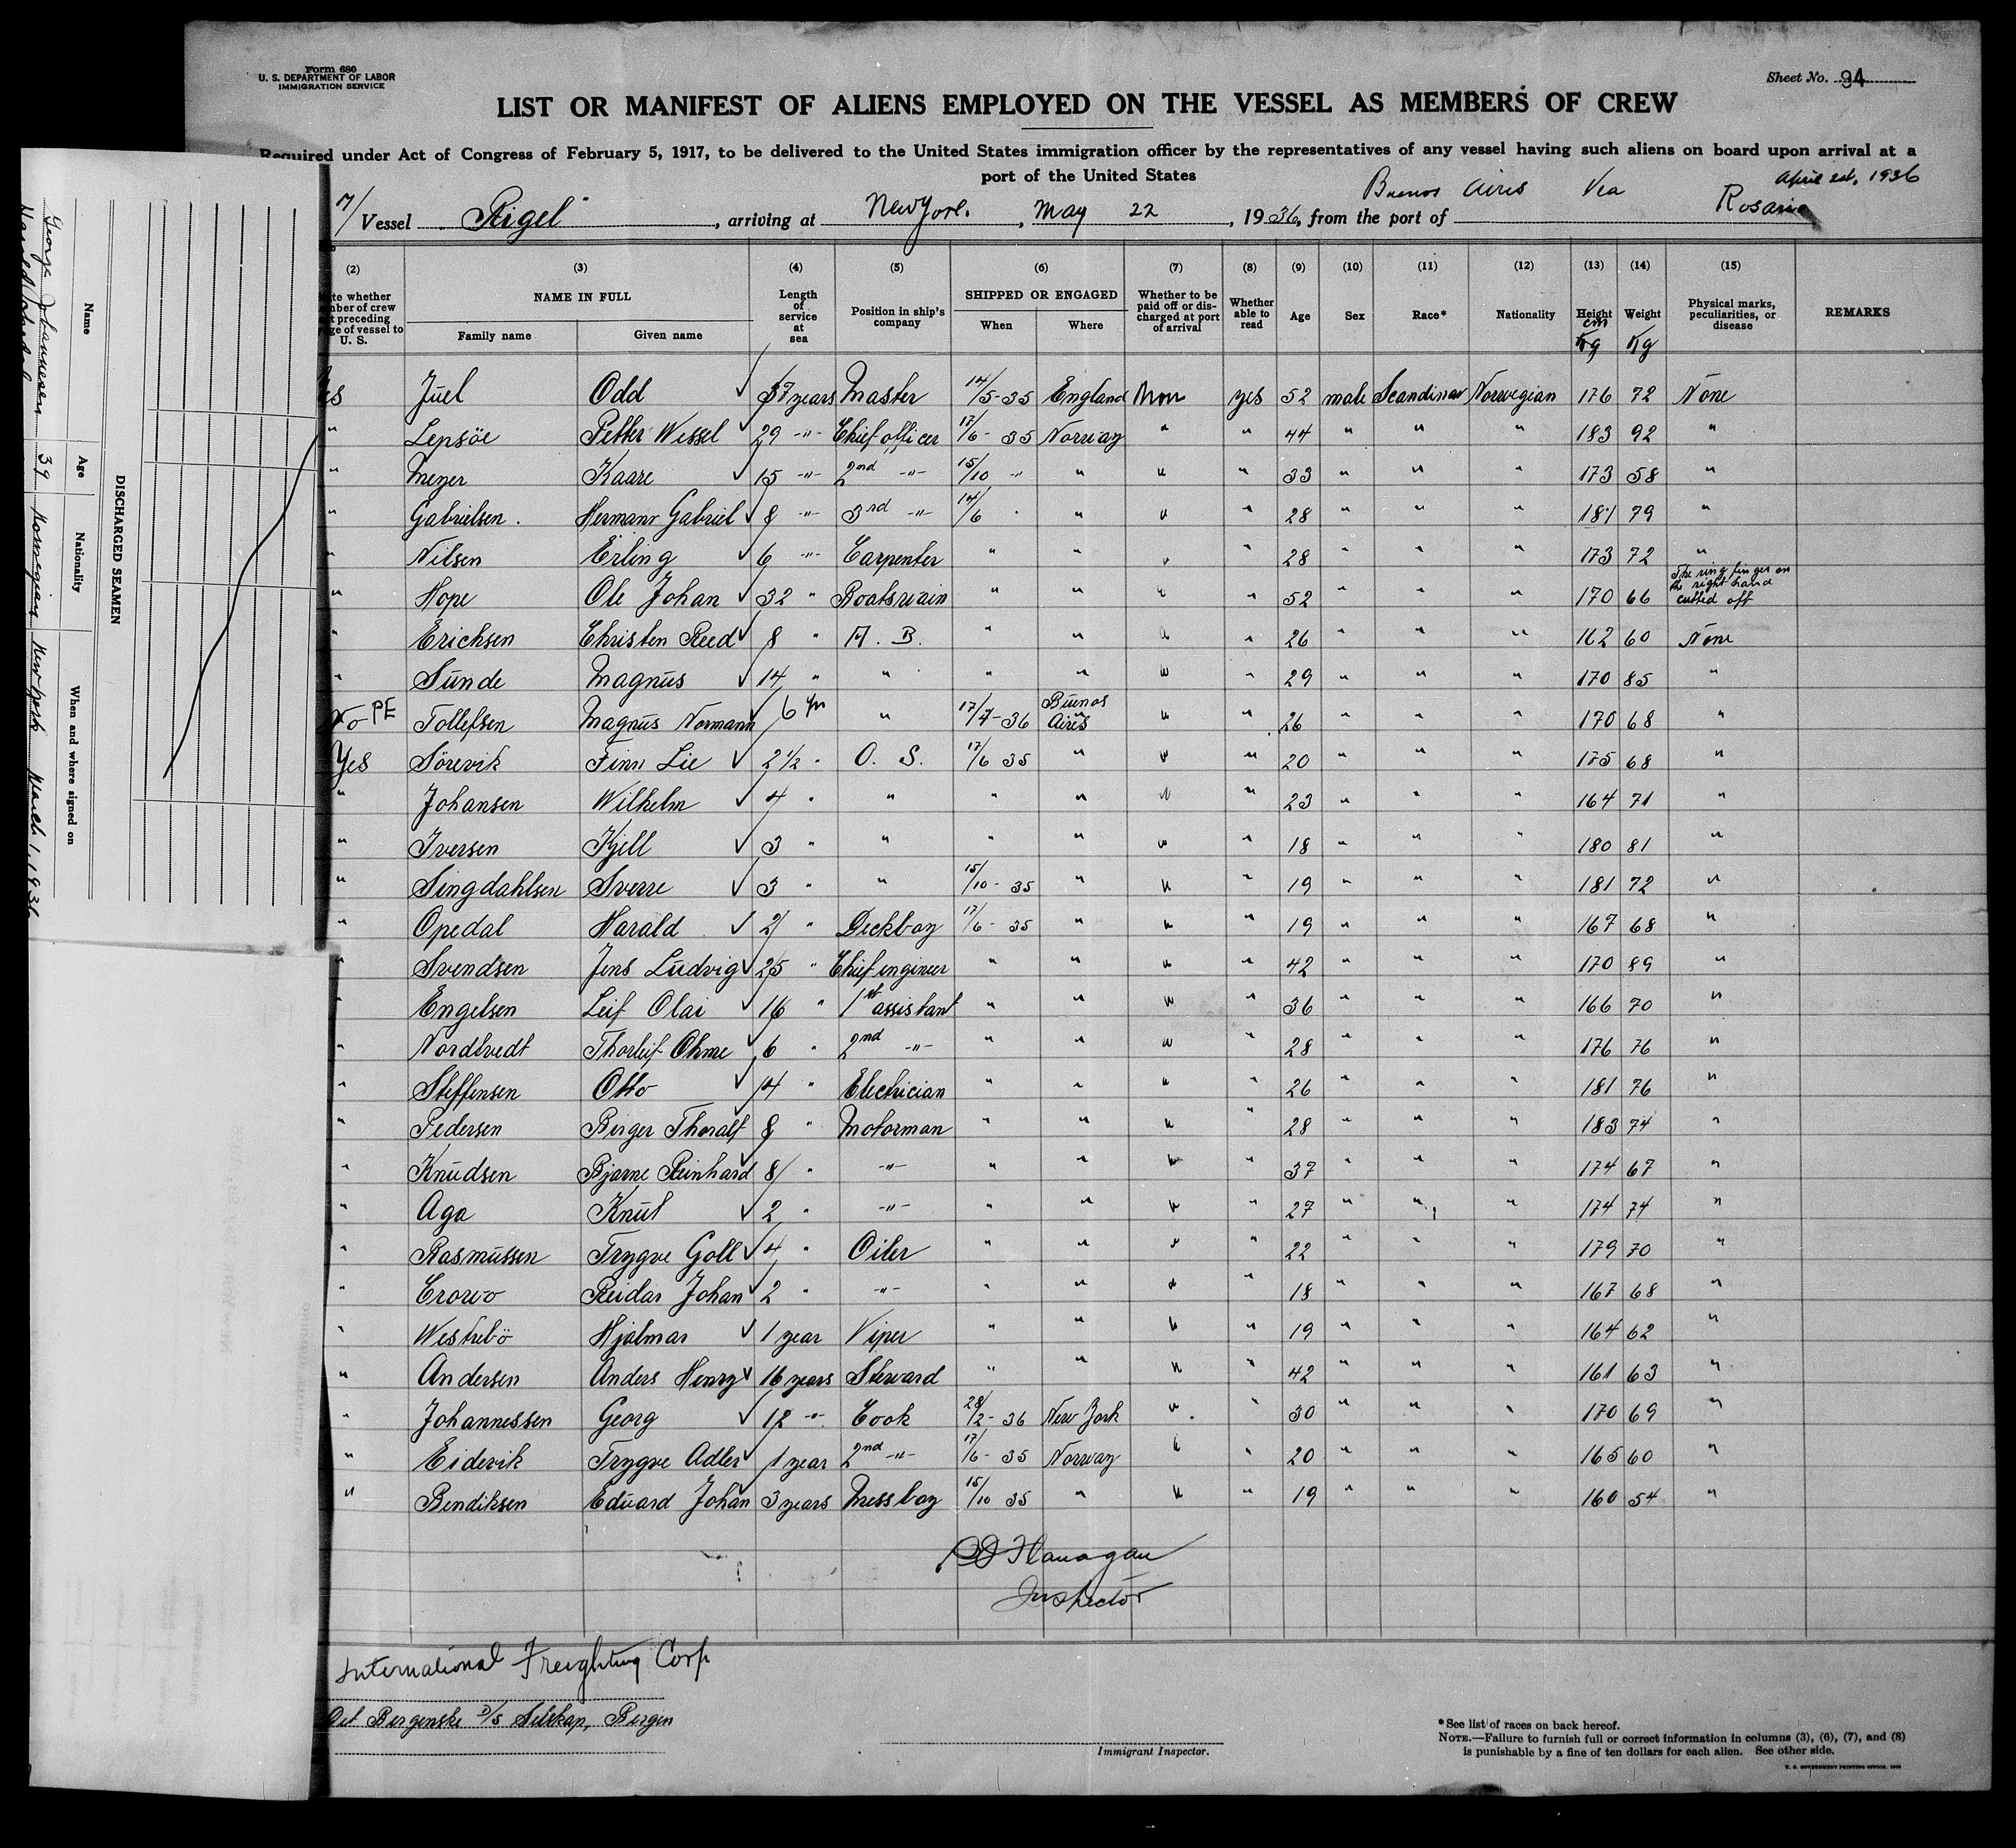 Form 680
U. S. DEPARTMENT OF LABOR
IMMIGRATION SERVICE
Sheet No. 94
LIST OR MANIFEST OF ALIENS EMPLOYED ON THE VESSEL AS MEMBERS OF CREW
Required under Act of Congress of February 5, 1917, to be delivered to the United States immigration officer by the representatives of any vessel having such aliens on board upon arrival at a
port of the United States
Vessel Rigel, arriving at New York, May 22, 1936, from the port of Buenos Aires Via Rosario April 1936
(2) (3) (4) (5) (6) (7) (8) (9) (10) (11) (12) (13) (14) (15)
NAME IN FULL Family name Given name Length of service at sea Position in ship's company SHIPPED OR ENGAGED When Where Whether to be paid off or discharged at port of arrival Whether able to read Age Sex Race* Nationality Height cm Weight Kg Physical marks, peculiarities, or disease REMARKS
Juel Odd 37 years Master 14/5-35 England Non yes 52 male Scandinav Norwegian 176 72 None
" Lepsöe Petter Wessel 29 -"- Chief officer 17/6-35 Norway " " 44 " " " 183 92 "
" Meyer Kaare 15 -"- 2nd -"- 15/10 " " " " 33 " " " 173 58 "
" Gabrielsen Hermann Gabriel 8 -"- 3rd -"- 14/6 " " " " 28 " " " 181 79 "
" Nilsen Erling 6 -"- Carpenter " " " " 28 " " " 173 72 "
" Hope Ole Johan 32 " Boatswain " " " " 52 " " " 170 66 The ring finger on the right hand cutted off
" Erichsen Christen Reed 8 " A. B. " " " " 26 " " " 162 60 None
" Sunde Magnus 14 " " " " " " 29 " " " 170 85 "
No PE Tollefsen Magnus Normann 6 yrs " 17/4-36 Buenos Aires " " 26 " " " 170 68 "
Yes Sörevik Finn Lie 2 1/2 " O. S. 17/6 35 " " " 20 " " " 175 68 "
" Johansen Wilhelm 4 " " " " " " 23 " " " 164 71 "
" Iversen Kjell 3 " " " " " " 18 " " " 180 81 "
" Singdahlsen Sverre 3 " " 15/10-35 " " " 19 " " " 181 72 "
" Opedal Harald 2 " Deckboy 17/6-35 " " " 19 " " " 167 68 "
" Svendsen Jens Ludvig 25 " Chief engineer " " " " 42 " " " 170 89 "
" Engelsen Leif Olai 16 " 1st assistant " " " " 36 " " " 166 70 "
" Nordtvedt Thorleif Ohme 6 " 2nd -"- " " " " 28 " " " 176 76 "
" Steffensen Otto 4 " Electrician " " " " 26 " " " 181 76 "
" Pedersen Birger Thoralf 8 " Motorman " " " " 28 " " " 183 74 "
" Knudsen Bjarne Reinhard 8 " -"- " " " " 37 " " " 174 67 "
" Aga Knut 2 " -"- " " " " 27 " " " 174 74 "
" Rasmussen Trygve Goll 4 " Oiler " " " " 22 " " " 179 70 "
" Crowo Reidar Johan 2 " -"- " " " " 18 " " " 167 68 "
" Westrebö Hjalmar 1 year Viper " " " " 19 " " " 164 62 "
" Andersen Anders Henry 16 years Steward " " " " 42 " " " 161 63 "
" Johannessen Georg 12 -"- Cook 28/2-36 New York " " 30 " " " 170 69 "
" Eidevik Trygve Adler 1 year 2nd -"- 17/6-35 Norway " " 20 " " " 165 60 "
" Bendiksen Edvard Johan 3 years Messboy 15/10 35 " " " 19 " " " 160 54 "
Flanagan
Inspector
International Freighting Corp
Det Bergenske D/S Selskap, Bergen
Immigrant Inspector.
*See list of races on back hereof.
NOTE.—Failure to furnish full or correct information in columns (3), (6), (7), and (8)
is punishable by a fine of ten dollars for each alien. See other side.
DISCHARGED SEAMEN
Name Age Nationality When and where signed on
George Johannessen 39 Norwegian New York March 1, 1936